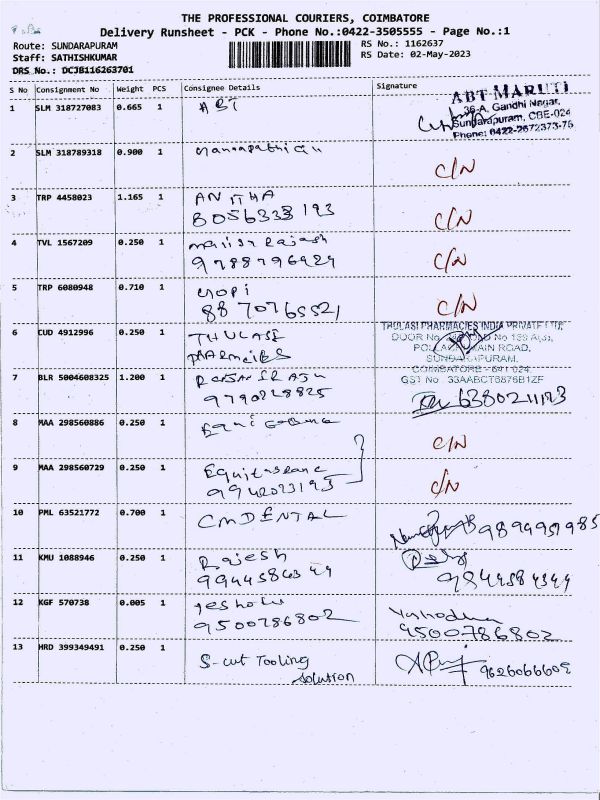 THE PROFESSIONAL COURIERS, COIMBATORE
Delivery Runsheet - PCK - Phone No.:0422-3505555 - Page No.:1
Route: SUNDARAPURAM
RS No.: 1162637
Staff: SATHISHKUMAR
RS Date: 02-May-2023
DRS No.: DCJB116263701
S No Consignment No Weight PCS Consignee Details Signature
1 SLM 318727083 0.665 1 ABT
ABT MARUTI
36-A, Gandhi Nagar,
Sundarapuram, CBE-024
Phone: 0422-2672373-76
2 SLM 318789318 0.900 1 C/N
3 TRP 4458023 1.165 1 ANITHA
8056333193 C/N
4 TVL 1567209 0.250 1 Rajesh
9788796429 C/N
5 TRP 6080948 0.710 1 Gopi
8870765521 C/N
6 CUD 4912996 0.250 1 THULASI
PHARMACIES
THULASI PHARMACIES INDIA PRIVATE LTD,
DOOR No
MAIN ROAD,
SUNDARAPURAM,
COIMBATORE - 641 024.
GST No : 33AABCT6876B1ZF
7 BLR 5004608325 1.200 1
9790228825 6380211193
8 MAA 298560886 0.250 1 C/N
9 MAA 298560729 0.250 1
9942023195 C/N
10 PML 63521772 0.700 1 CMDENTAL
9894959985
11 KMU 1088946 0.250 1 Rajesh
9944584344 9844584344
12 KGF 570738 0.005 1 Yashodha
9500786802 9500786802
13 HRD 399349491 0.250 1 S-cut Tooling
solution 9626066609